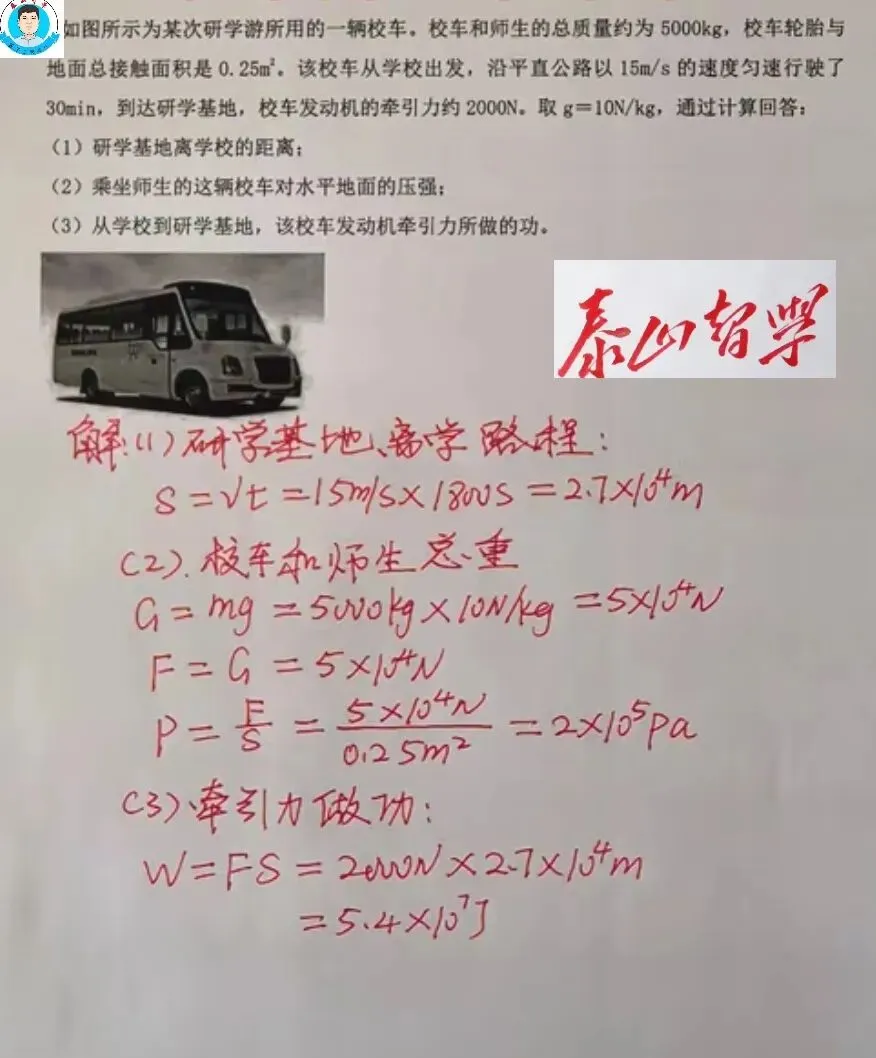 如图所示为某次研学游所用的一辆校车。校车和师生的总质量约为5000kg，校车轮胎与
地面总接触面积是0.25m²。该校车从学校出发，沿平直公路以15m/s的速度匀速行驶了
30min，到达研学基地，校车发动机的牵引力约2000N。取g=10N/kg，通过计算回答：
（1）研学基地离学校的距离；
（2）乘坐师生的这辆校车对水平地面的压强；
（3）从学校到研学基地，该校车发动机牵引力所做的功。
泰山智学
解:(1)研学基地离学路程：
S=vt=15m/s×1800s=2.7×10⁴m
(2).校车和师生总重
G=mg=5000kg×10N/kg=5×10⁴N
F=G=5×10⁴N
P=F/S=5×10⁴N/0.25m²=2×10⁵Pa
(3)牵引力做功：
W=FS=2000N×2.7×10⁴m
=5.4×10⁷J